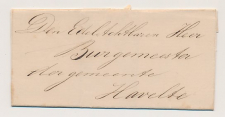 Den Edelachtbaren Heer
Burgemeester
der gemeente
Havelte